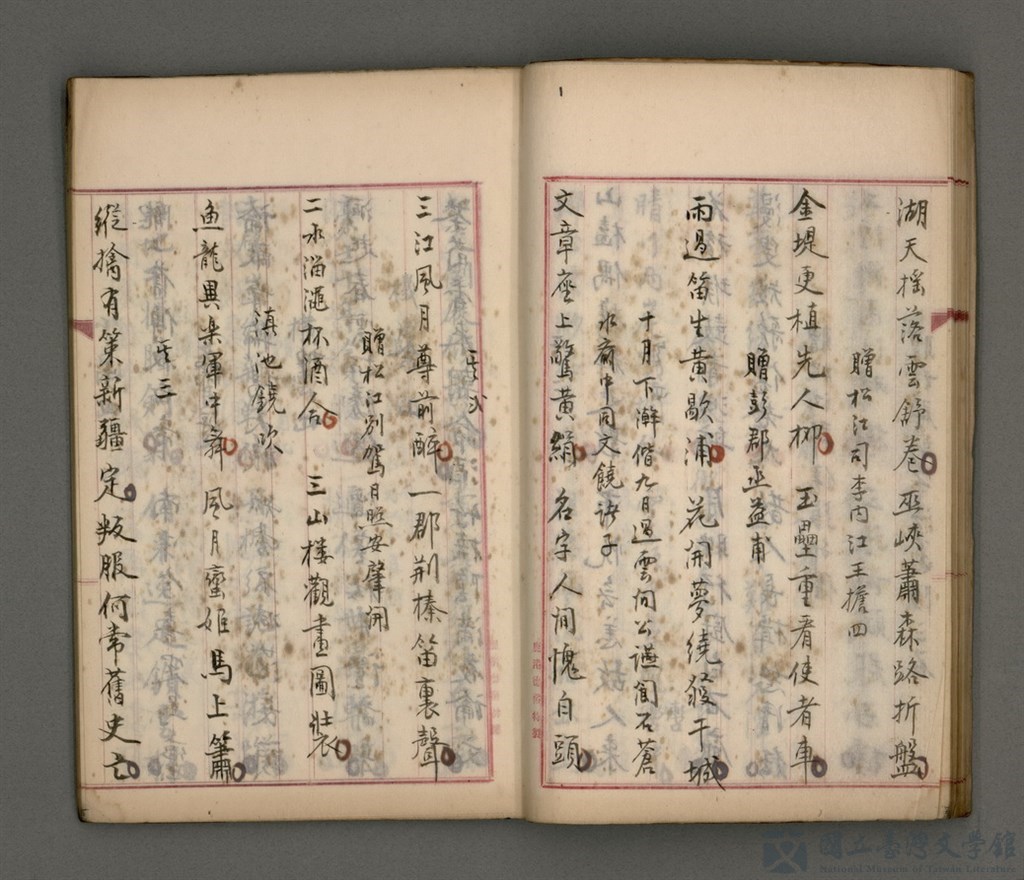 湖天搖落雲舒卷 巫峽蕭森路折盤
贈松江司李內江王擔四
金堤更植先人柳 玉壘重看使者車
贈彭郡丞益甫
雨過笛生黄歇浦 花開夢繞發干城
十月下澣偕九日過雲間公讌閣石蒼
水齋中同文饒諸子
文章座上驚黄絹 名字人間愧白頭
其弍
三江風月尊前醉 一郡荊榛笛裏聲
贈松江別駕日照安肇開
二水淄澠杯酒合 三山樓觀畫圖裝
滇池鐃吹
魚龍異樂軍中舞 風月蠻姬馬上簫
其三
縱擒有策新疆定 叛服何常舊史亡
國立臺灣文學館
National Museum of Taiwan Literature